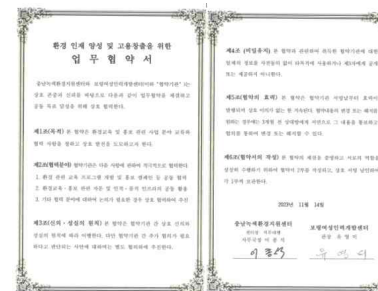 환경 인재 양성 및 고용창출을 위한
업 무 협 약 서
충남녹색환경지원센터와 보령여성인력개발센터(이하 "협약기관")는
상호 존중과 신뢰를 바탕으로 다음과 같이 업무협약을 체결하고
공동 목표 달성을 위해 상호 협력한다.
제1조(목적) 본 협약은 환경교육 및 홍보 관련 사업 분야 교류와
협력 사항을 정하고 상호 발전을 도모하고자 한다.
제2조(협력분야) 협약기관은 다음 사항에 관하여 적극적으로 협력한다.
1. 환경 관련 교육 프로그램 개발 및 홍보 캠페인 등 공동 협력
2. 환경교육·홍보 관련 자문 및 인적·물적 인프라의 공동 활용
3. 기타 협력 분야에 대하여 논의가 필요한 경우 상호 협의하여 추진
제3조(신의·성실의 원칙) 본 협약은 협약기관 간 상호 신뢰와
성실의 원칙에 따라 이행한다. 다만 협약기관 간 추가 협의가 필요
하다고 판단되는 사안에 대하여는 별도 협의하에 추진한다.
제4조 (비밀유지) 본 협약과 관련하여 취득한 협약기관에 대한
일체의 정보를 사전동의 없이 타목적에 사용하거나 제3자에게 공개
또는 제공하지 아니한다.
제5조(협약의 효력) 본 협약은 협약기관 서명날부터 효력이
발생되며 상호 이의가 없는 한 지속된다. 협약내용의 변경 또는 해지를
원하는 경우에는 1개월 전 상대방에게 서면으로 그 내용을 통보하고
협의를 통하여 변경 또는 해지할 수 있다.
제6조(협약서의 작성) 본 협약의 체결을 증명하고 서로의 역할을
성실히 수행하기 위하여 협약서 2부를 작성하고, 상호 서명 날인하여
각 1부씩 보관한다.
2023년 11월 14일
충남녹색환경지원센터
보령여성인력개발센터
센터장 직무대행
사무국장 이 윤 석
관장 유 영 미